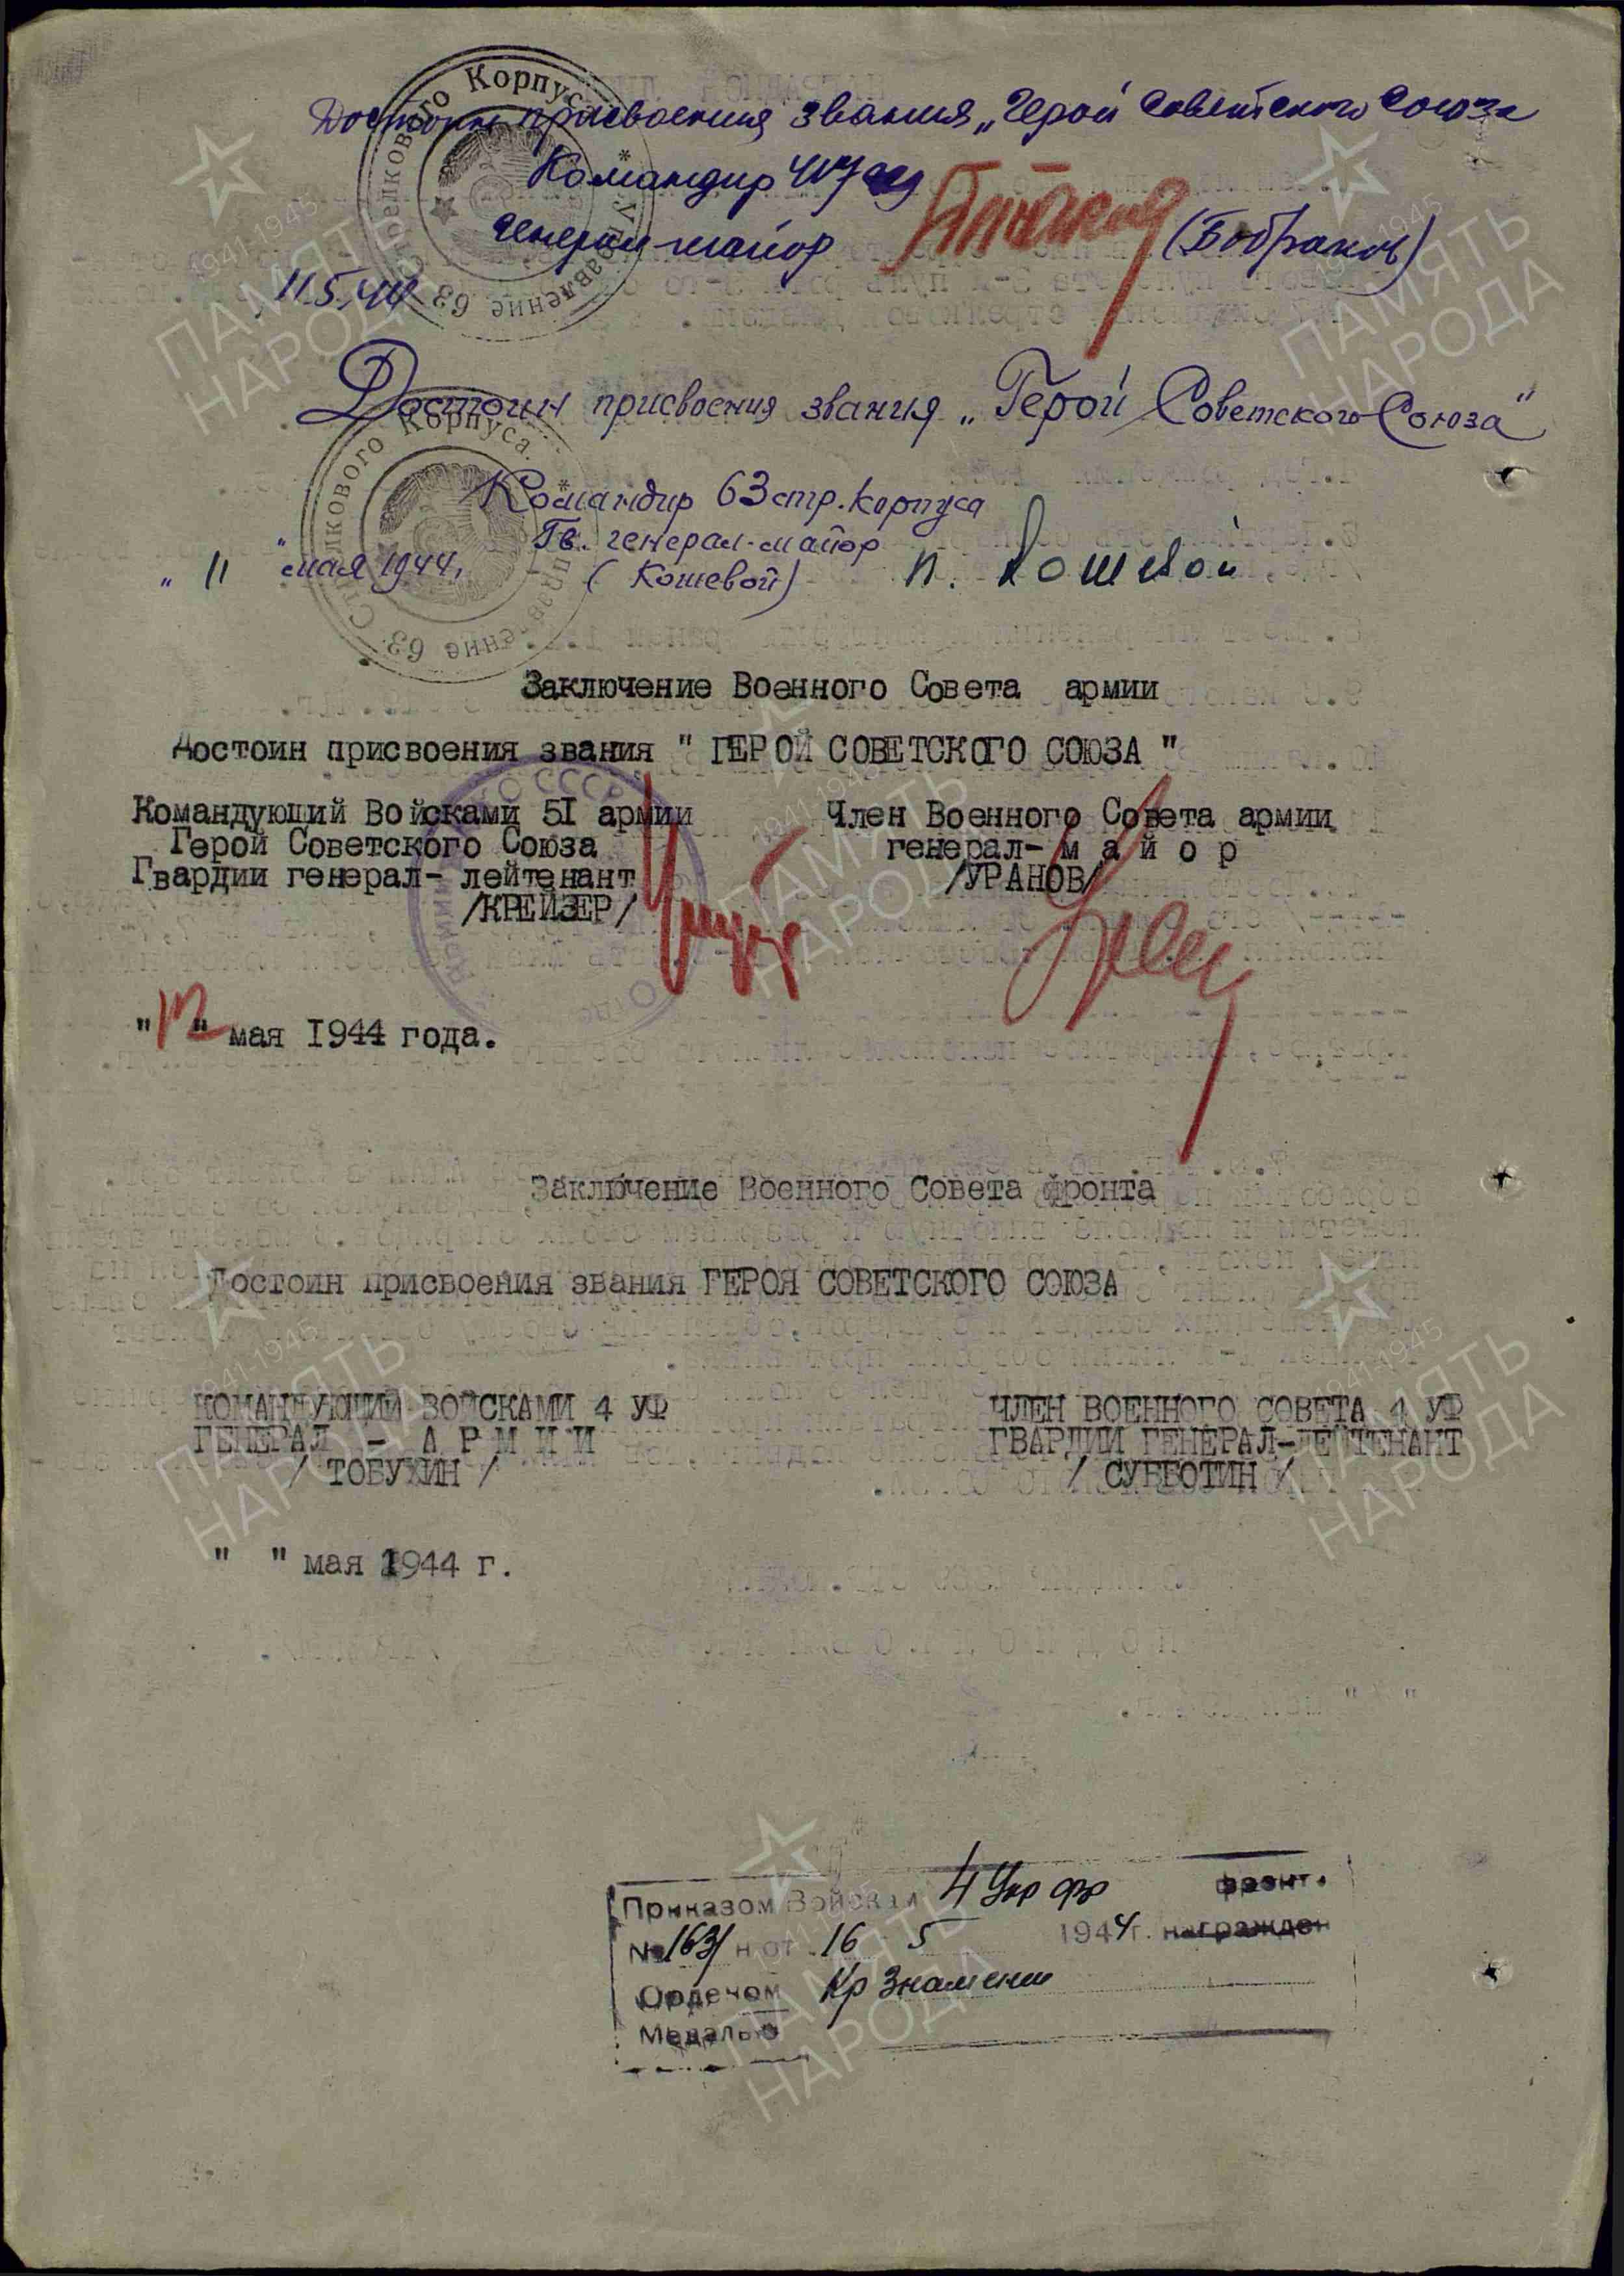 Достоин присвоения звания „Герой Советского Союза
Командир 417 сд
генерал-майор (Бобраков)
11.5.44
Достоин присвоения звания „Герой Советского Союза"
Командир 63 стр. корпуса
Гв. генерал-майор
(Кошевой) П. Кошевой
„ 11 " мая 1944,
Стрелкового Корпуса.
Управление 63
Заключение Военного Совета армии
Достоин присвоения звания " ГЕРОЙ СОВЕТСКОГО СОЮЗА "
Командующий Войсками 51 армии
Герой Советского Союза
Гвардии генерал- лейтенант
/КРЕЙЗЕР/
Член Военного Совета армии
генерал- м а й о р
/УРАНОВ/
"12" мая 1944 года.
Заключение Военного Совета фронта
Достоин присвоения звания ГЕРОЯ СОВЕТСКОГО СОЮЗА
КОМАНДУЮЩИЙ ВОЙСКАМИ 4 УФ
ГЕНЕРАЛ - А Р М И И
/ ТОБУХИН /
ЧЛЕН ВОЕННОГО СОВЕТА 4 УФ
ГВАРДИИ ГЕНЕРАЛ-ЛЕЙТЕНАНТ
/ СУББОТИН /
" " мая 1944 г.
Приказом Войскам 4 Укр фр фронт.
№ 163/н от 16 5 1944 г. награжден
Орденом Кр Знамени
Медалью
1941-1945
ПАМЯТЬ
НАРОДА